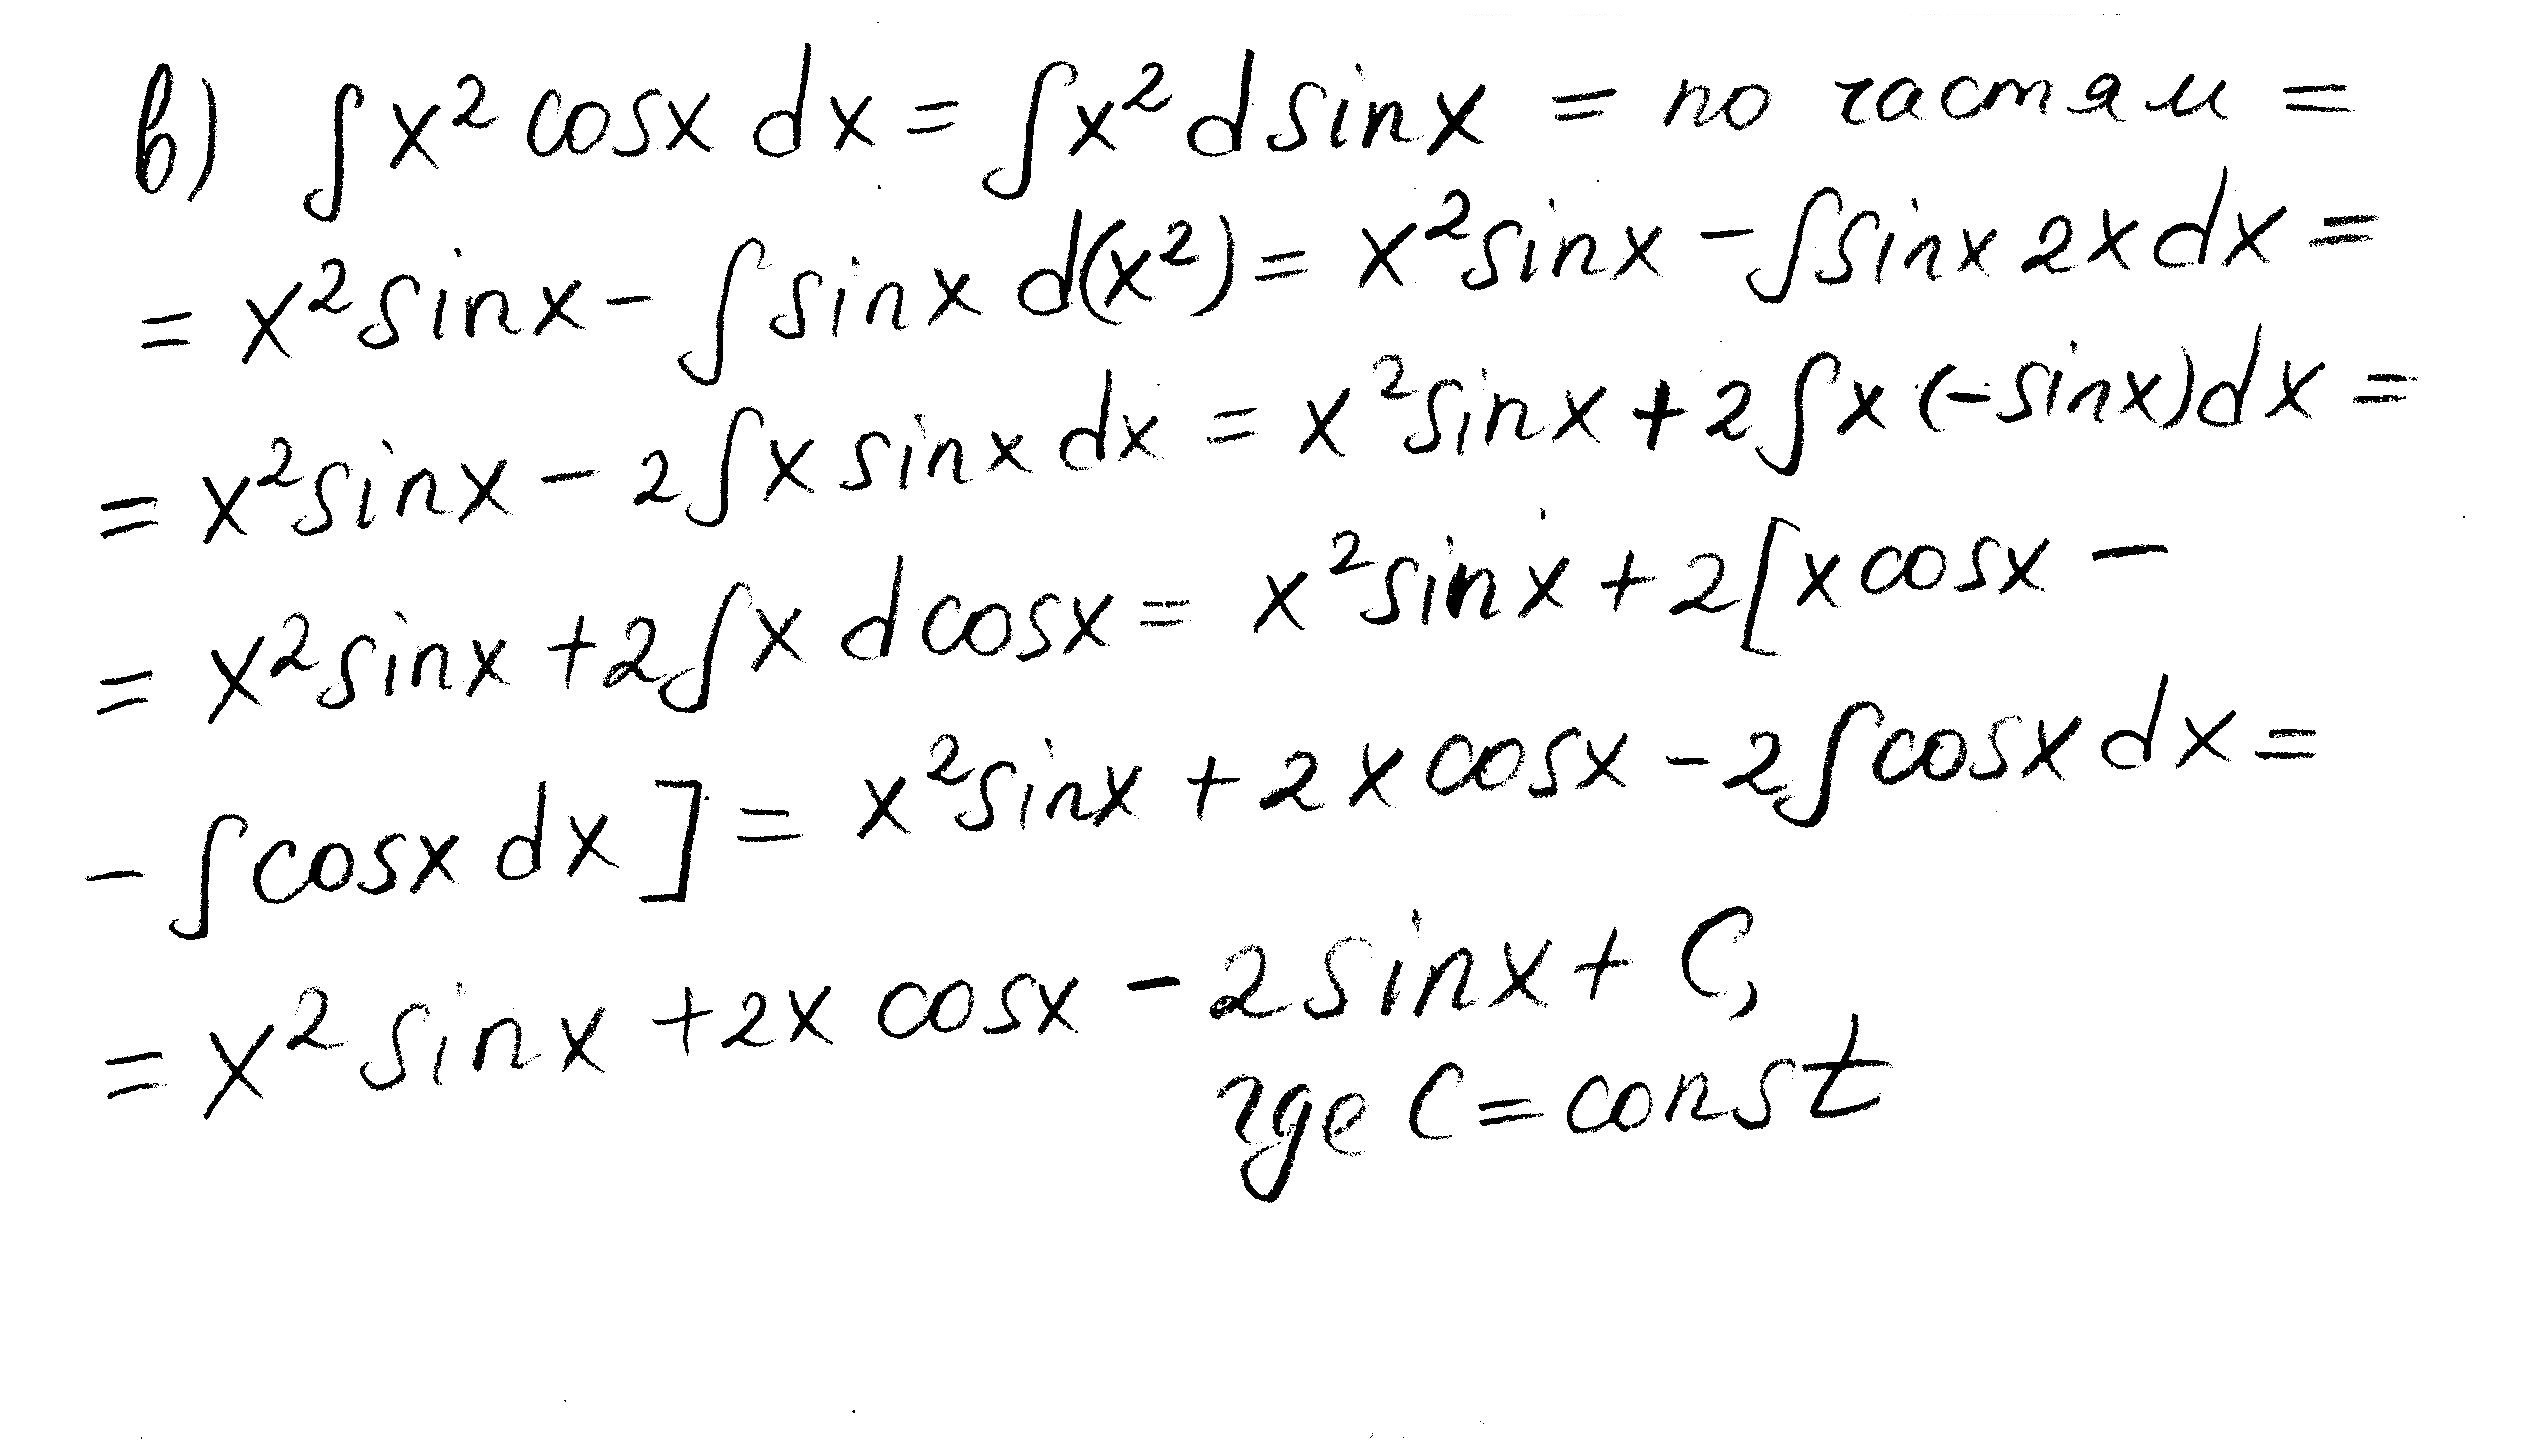 в) ∫ x² cosx dx = ∫ x² d sinx = по частям =
= x² sinx - ∫ sinx d(x²) = x² sinx - ∫ sinx 2x dx =
= x² sinx - 2 ∫ x sinx dx = x² sinx + 2 ∫ x (-sinx) dx =
= x² sinx + 2 ∫ x d cosx = x² sinx + 2 [ x cosx -
- ∫ cosx dx ] = x² sinx + 2x cosx - 2 ∫ cosx dx =
= x² sinx + 2x cosx - 2 sinx + C,
где C = const